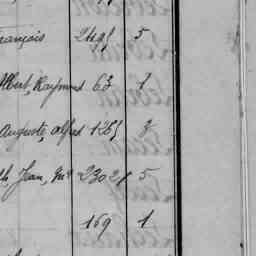 rançois 2491 5
Albert, Raymond 63 1
Auguste, Alfred 1265 3
h, Jean, Me 2302 5
169 1